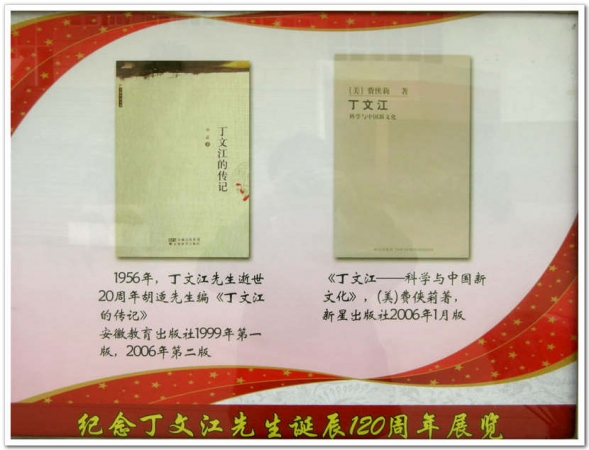 丁文江的传记
[美] 费侠莉 著
丁文江
科学与中国新文化
1956年，丁文江先生逝世
20周年胡适先生编《丁文江
的传记》
安徽教育出版社1999年第一
版，2006年第二版
《丁文江——科学与中国新
文化》，(美)费侠莉著，
新星出版社2006年1月版
纪念丁文江先生诞辰120周年展览